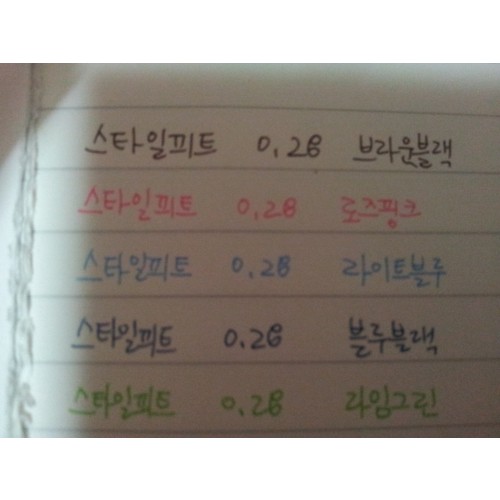 스타일피트 0.28 브라운블랙
스타일피트 0.28 로즈핑크
스타일피트 0.28 라이트블루
스타일피트 0.28 블루블랙
스타일피트 0.28 라임그린